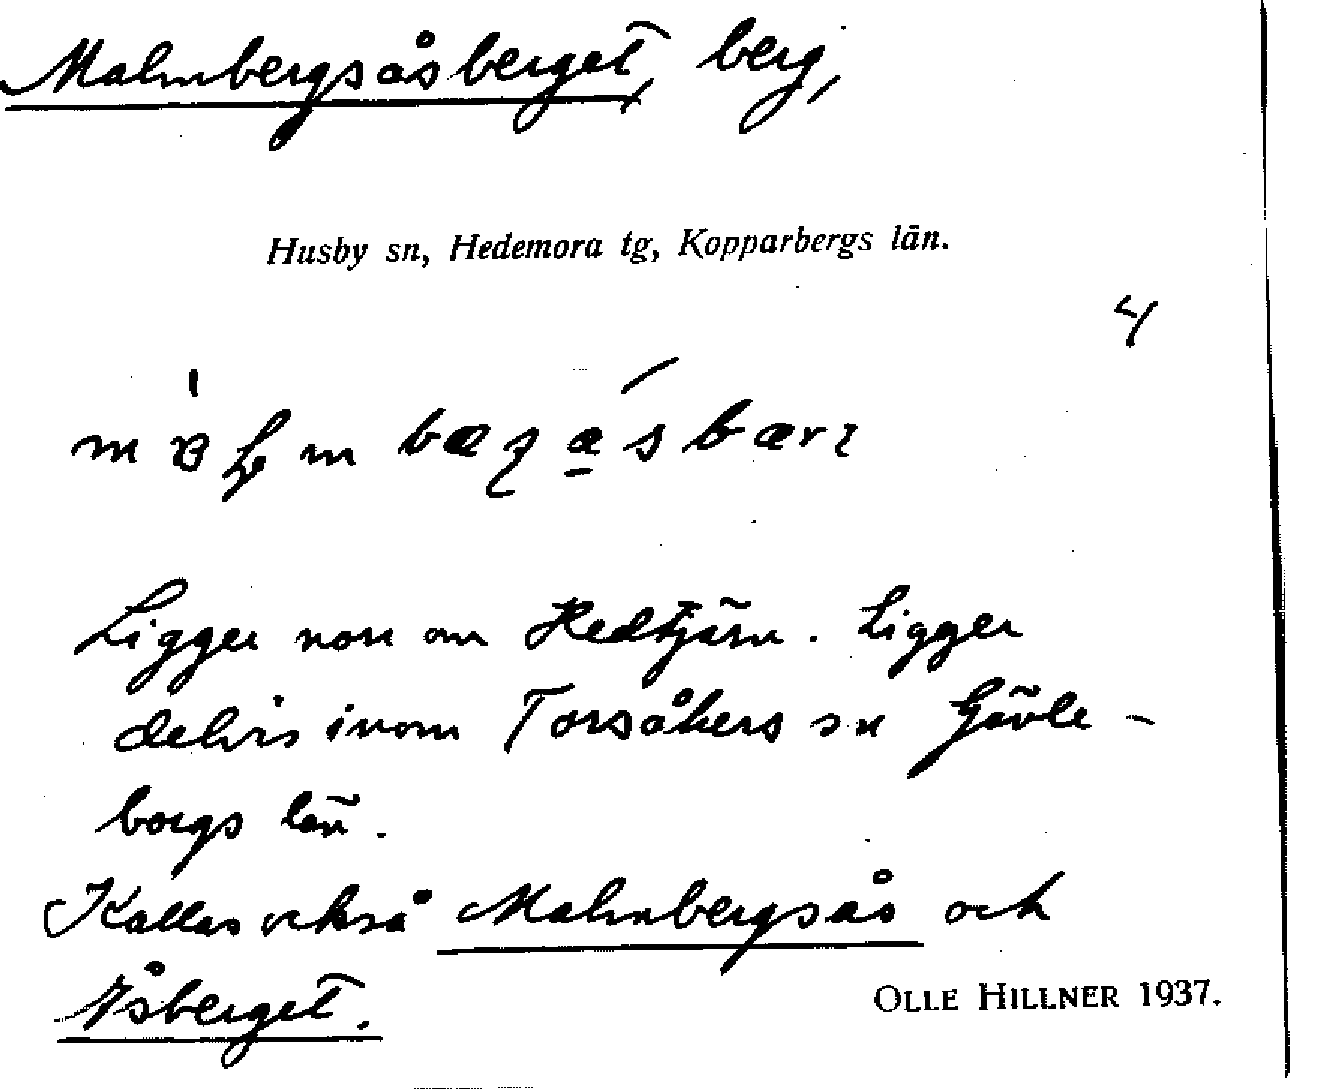 Malmbergsåsberget, berg,
Husby sn, Hedemora tg, Kopparbergs län.
4
Ligger norr om Hedtjärn. Ligger
delvis inom Torsåkers sn Gävle-
borgs län.
Kallas också Malmbergsås och
Åsberget.
OLLE HILLNER 1937.